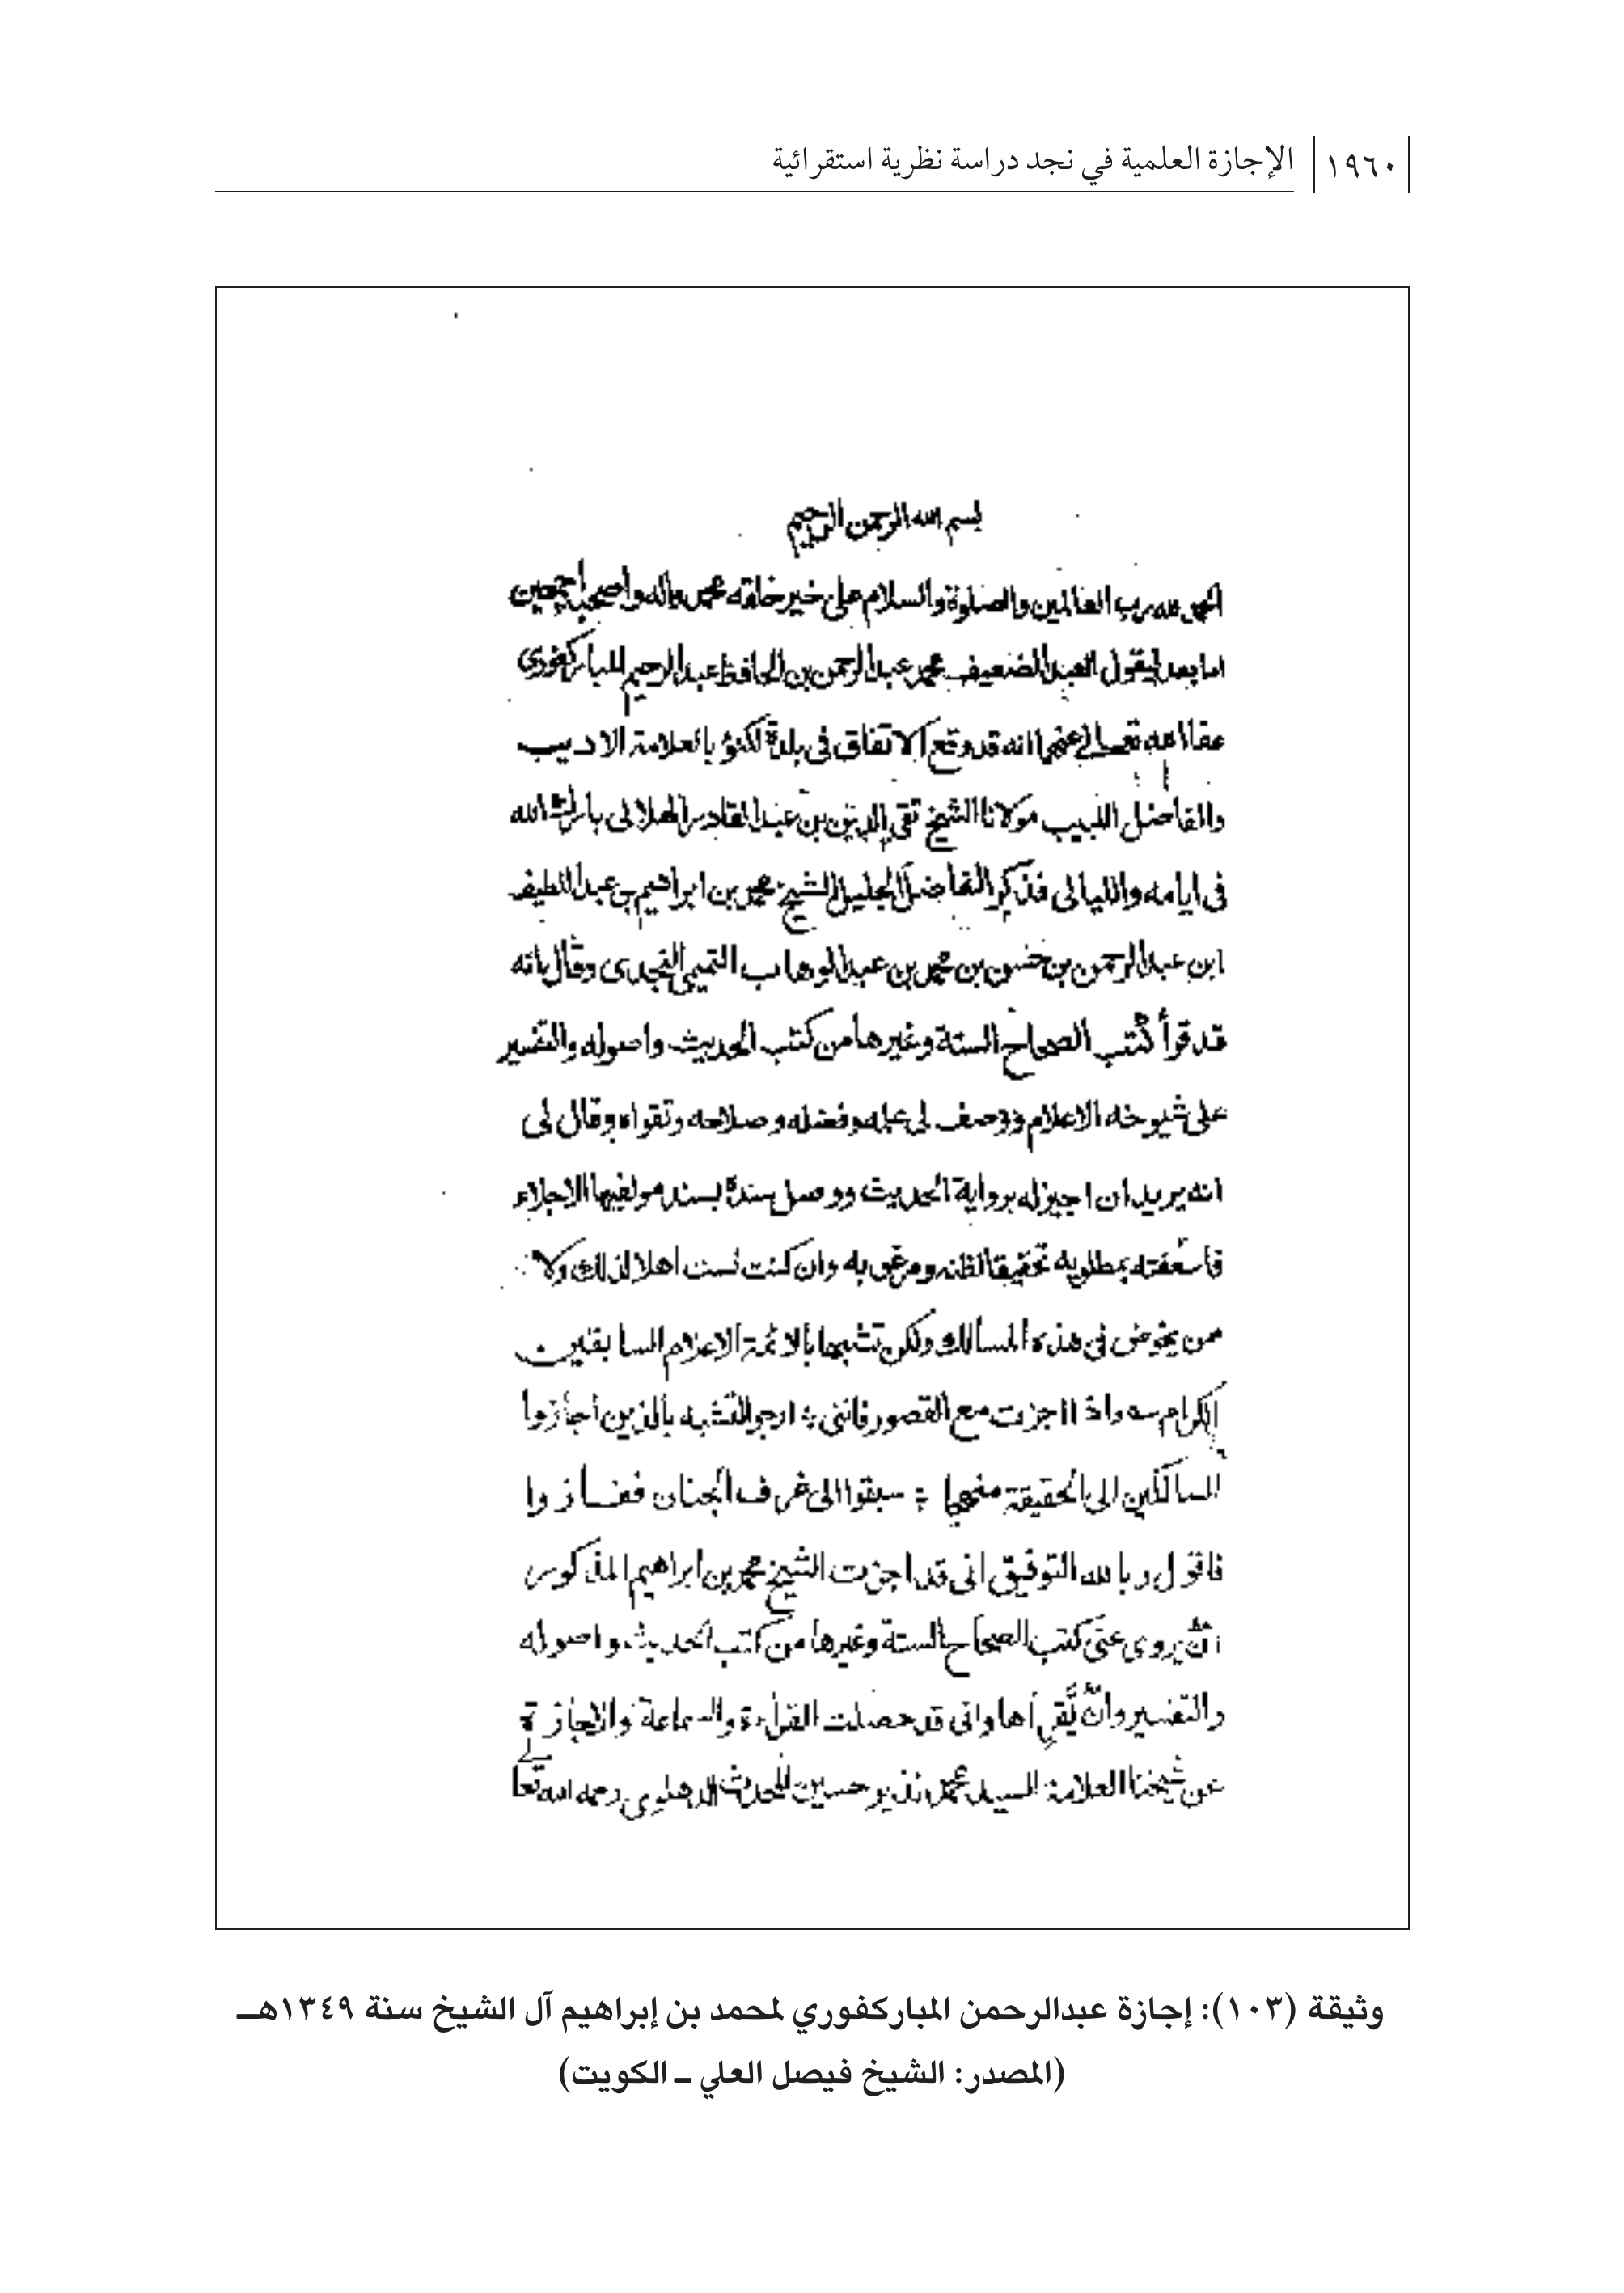 ١٩٦٠ الإجازة العلمية في نجد دراسة نظرية استقرائية
بسم الله الرحمن الرحيم
الحمد لله رب العالمين والصلوة والسلام على خير خلقه محمد واله واصحابه اجمعين
اما بعد فيقول العبد الضعيف محمد عبد الرحمن بن الحافظ عبد الرحيم المباركفورى
عفا الله تعالى عنهما انه قد وقع الاتفاق فى بلدة لكنؤ بالعلامة الاديب
والفاضل اللبيب مولانا الشيخ تقى الدين بن عبد القادر الهلالى بارك الله
فى ايامه والليالى فذكر الفاضل الجليل الشيخ محمد بن ابراهيم بن عبد اللطيف
ابن عبد الرحمن بن حسن بن محمد بن عبد الوهاب التميمى النجدى وقال بانه
قد قرأ كتب الصحاح الستة وغيرها من كتب الحديث واصوله والتفسير
على شيوخه الاعلام ووصف لى علمه وفضله وصلاحه وتقواه وقال لى
انه يريد ان اجيز له برواية الحديث ووصل سنده بسند مولفيها الاجلاء
فاسعفته بمطلوبه تحقيقا لظنه ومرغوبه وان كنت لست اهلا لذلك ولا
ممن يخوض فى هذه المسالك ولكن تشبها بالائمة الاعلام السابقين
الكرام سه واذا اجزت مع القصور فاننى ؛ ارجو التشبه بالذين اجازوا
السالكين الى الحقيقة منهجا ؛ سبقوا الى غرف الجنان ففازوا
فاقول وبالله التوفيق انى قد اجزت الشيخ محمد بن ابراهيم المذكور
ان يروى عنى كتب الصحاح الستة وغيرها من كتب الحديث واصوله
والتفسير وان يقرأها وانى قد حصلت القراءة والسماعة والاجازة
عن شيخنا العلامة السيد محمد نذير حسين المحدث الدهلوى رحمه الله تعالى
وثيقة (١٠٣): إجازة عبدالرحمن المباركفوري لمحمد بن إبراهيم آل الشيخ سنة ١٣٤٩هـ
(المصدر: الشيخ فيصل العلي ـ الكويت)